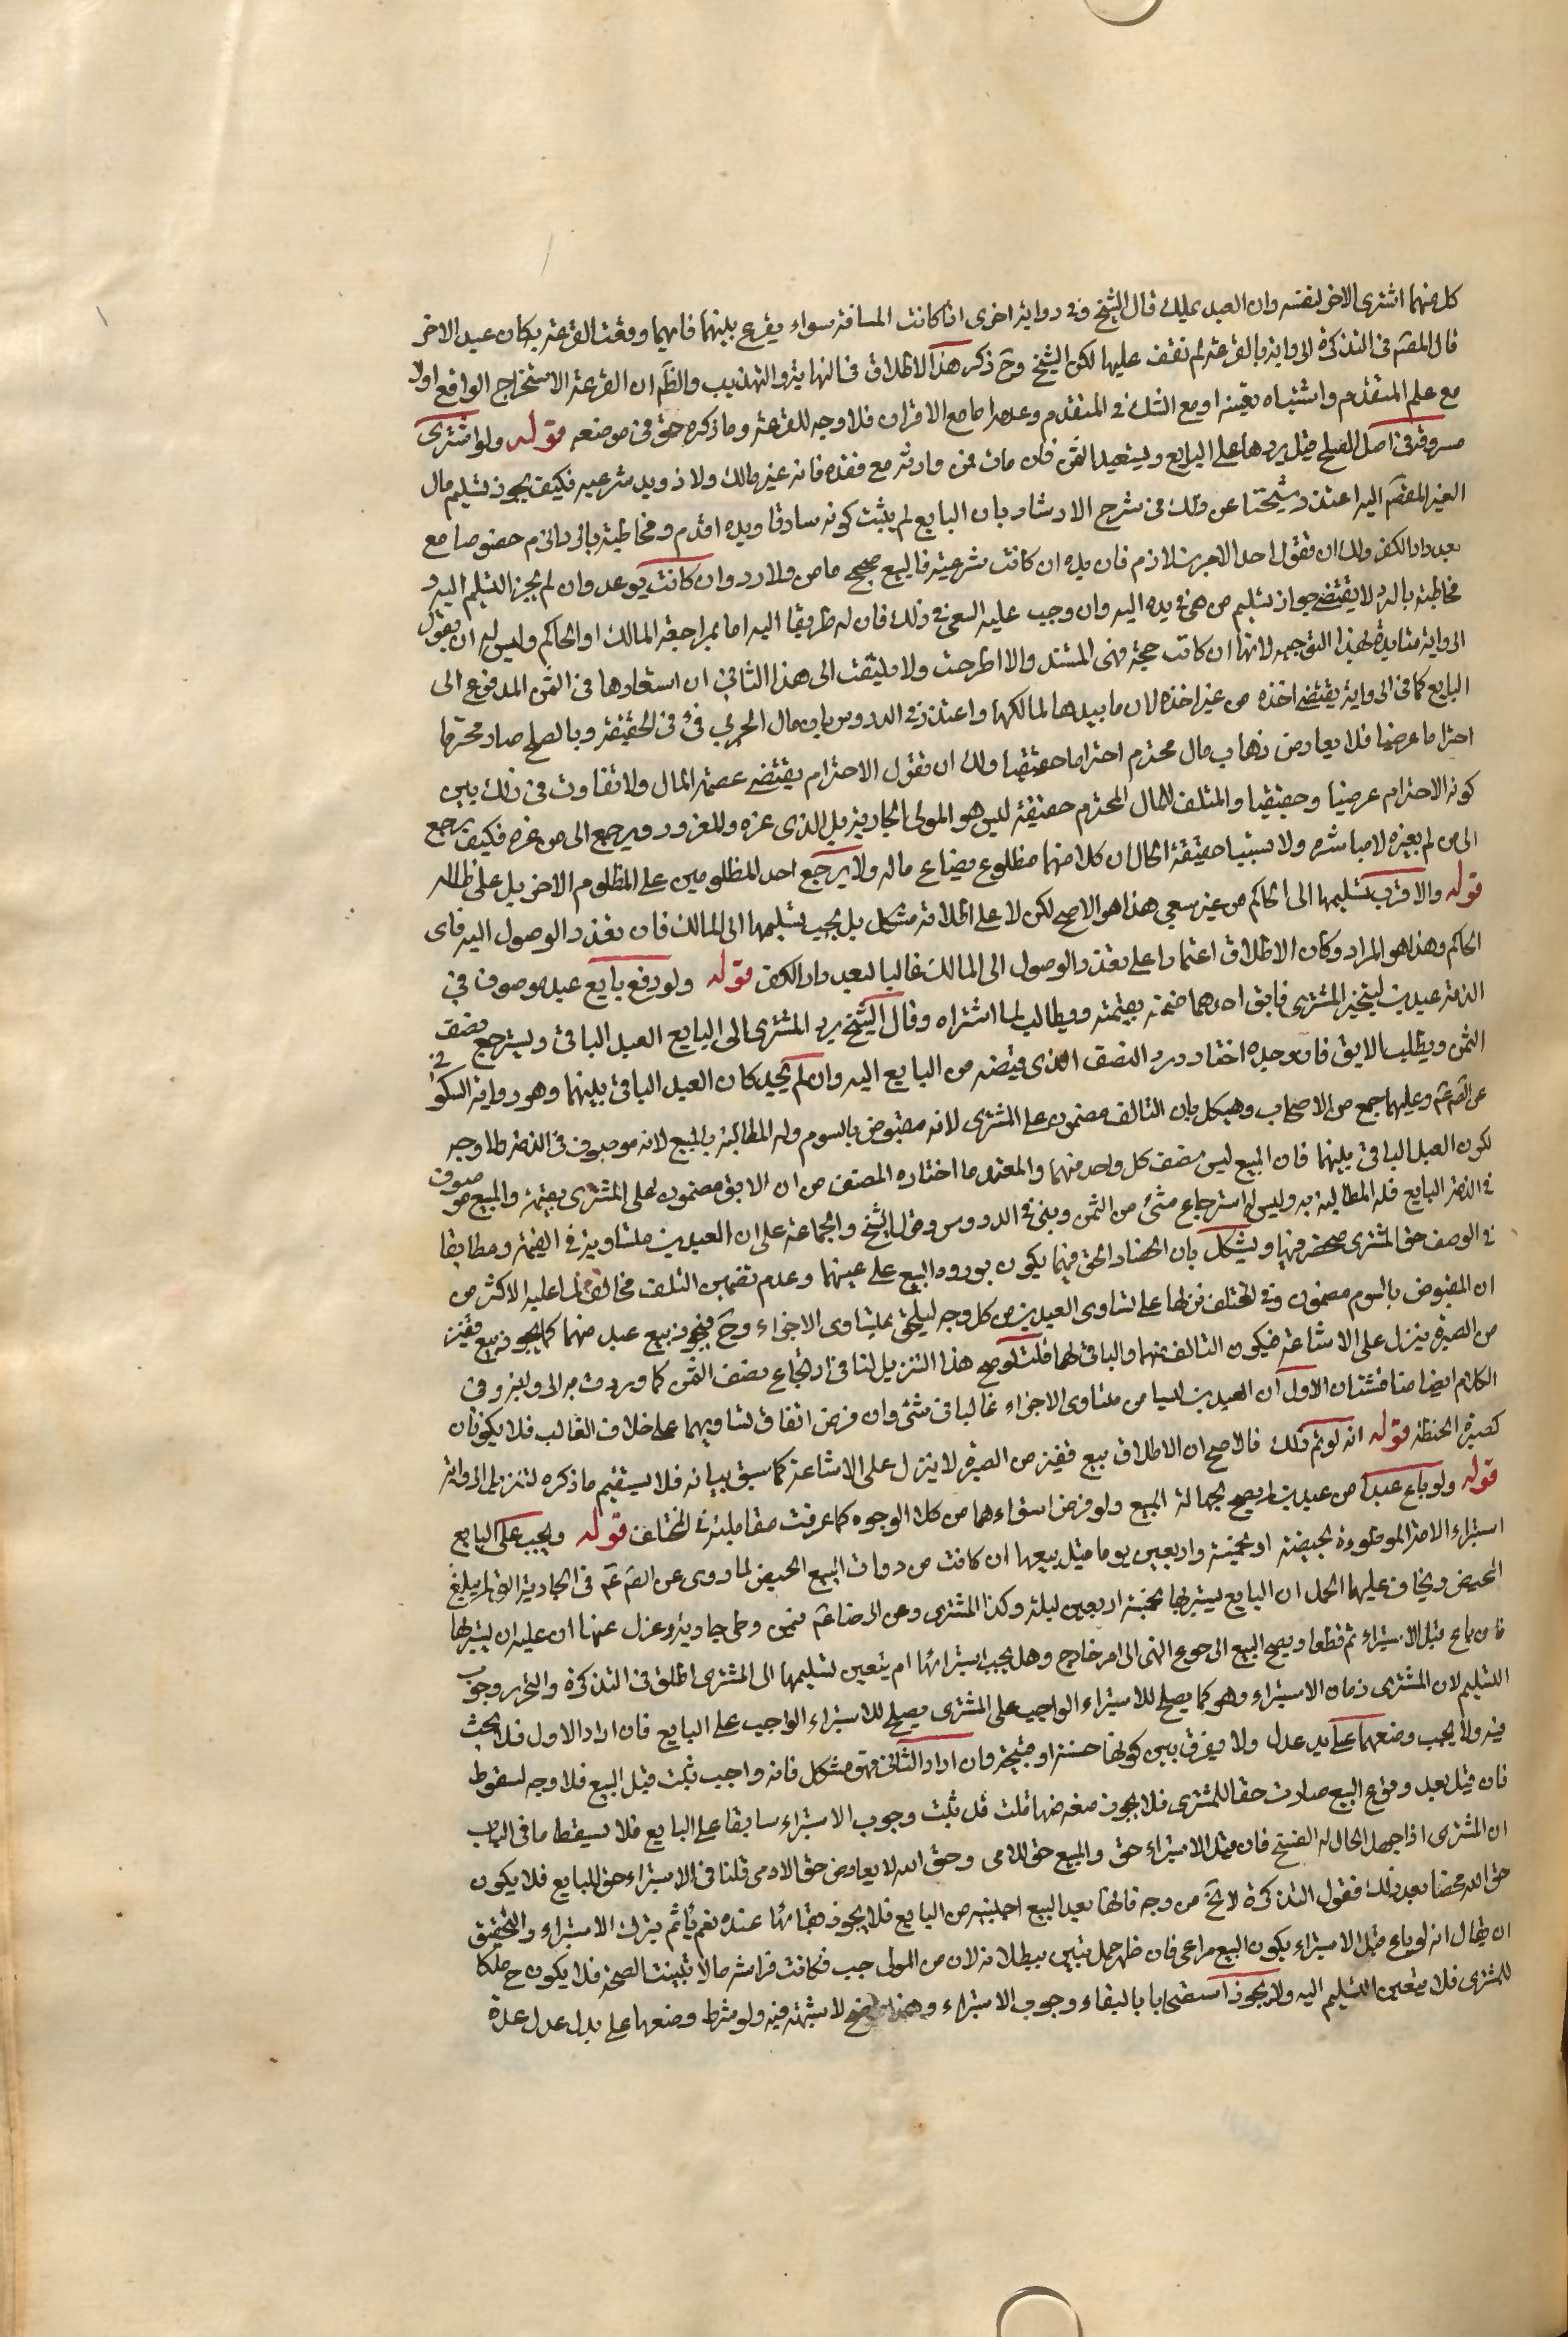 كل منهما اشترى الاخر لنفسه وان العبد يملك قال الشيخ وفى رواية اخرى اذا كانت المسافة سواء يقرع بينهما فايهما وقعت القرعة به كان عبد الاخر
قال المصنف فى التذكرة الرواية بالقرعة لم نقف عليها لكن الشيخ رح ذكر هذا الاطلاق فى النهاية والتهذيب والظم ان القرعة الاستخراج الواقع اولا
مع علم المتقدم واشتباه بعينه او مع الشك فى المتقدم وعدمه اما مع الاقتران فلا وجه للقرعة وما ذكره حق فى موضعه قوله ولو اشترى
مسروقة من اصل الصلح قيل يردها على البايع ويستعيد الثمن فان مات فمن وارثه مع فقده فانه غير مالك ولا ذو يد شرعيه فكيف يجوز تسليم مال
الغير المعصم اليه اعتذر شيخنا عن ذلك فى شرح الارشاد بان البايع لم يثبت كونه سارقا ويده اقدم ومخاطبة بالرد الزم خصوصا مع
بعد دار الكفر ولك ان تقول احد الامرين لازم فان يده ان كانت شرعية فالبيع صحيح ماض ولا رد وان كانت يد عدوان لم يجز التسليم اليه و
مخاطبة بالرد لا يقتضى جواز تسليم من هى فى يده اليه وان وجب عليه السعى فى ذلك فان له طريقا اليه اما بمراجعة المالك او الحاكم وليس له ان يقول
الرواية متايدة بهذا التوجيه لانها ان كانت حجة فهى المستند والا اطرحت ولا يلتفت الى هذا الثانى ان استعادها فى الثمن المدفوع الى
البايع كما فى الرواية يقتضى اخذه من غير اخذه لان ما بيدها لمالكها واعتذر فى الدروس بان مال الحربى فئ فى الحقيقة وبالصلح صار محترما
احتراما عرضيا فلا يعارض ذهاب مال محترم احتراما حقيقيا ولك ان تقول الاحترام يقتضى عصمة المال ولا تفاوت فى ذلك بين
كونه الاحترام عرضيا وحقيقيا والمتلف للمال المحترم حقيقة ليس هو المولى الجارية بل الذى غره والمغرور يرجع الى من غره فكيف يرجع
الى من لم يغيره لا مباشرة ولا تسبيبا حقيقة الحال ان كلا منهما مظلوع بضياع ماله ولا يرجع احد المظلومين على المظلوم الاخر بل على ظالمه
قوله والاقرب تسليمها الى الحاكم من غير سعى هذا هو الاصح لكن لا على اطلاقه مشكل بل يجب تسليمها الى المالك فان تعذر الوصول اليه فالى
الحاكم وهذا هو المراد وكان الاطلاق اعتمادا على تعذر الوصول الى المالك غالبا لبعد دار الكفر قوله ولو دفع بايع عبد موصوف فى
الذمة عبدين ليتخير المشترى فابق احدهما ضمنه بقيمته ويطالب لما اشتراه وقال الشيخ يرد المشترى الى البايع العبد الباقى ويسترجع نصف
الثمن ويطلب الابق فان وجده اختار ورد النصف الذى قبضه من البايع اليه وان لم يجد كان العبد الباقى بينهما وهو رواية السكونى
عن الصم عم وعليها جمع من الاصحاب ويشكل بان التالف مضمون على المشترى لانه مقبوض بالسوم وله المطالبة بالمبيع لانه موصوف فى الذمة ولا وجه
لكون العبد الباقى بينهما فان المبيع ليس نصف كل واحد منهما والمعتمد ما اختاره المصنف من ان الابق مضمون على المشترى بقيمته والمبيع موصوف
فى الذمة البايع فله المطالبة به وليس له استرجاع شئ من الثمن وبنى فى الدروس وقول الشيخ والجماعة على ان العبدين متساويين فى القيمة ومطابقا
فى الوصف حق المشترى منحصر فيها ويشكل بان انحصار الحق فيهما يكون بوروده البيع على عينهما وعدم تضمين التلف مخالف لما عليه الاكثر من
ان المقبوض بالسوم مضمون وفى المختلف نزلها على تساوى العبدين من كل وجه ليلحق بمتساوى الاجزاء وح فيجوز بيع عبد منهما كما يجوز بيع قفيز
من الصبرة ينزل على الاشاعة فيكون التالف منهما والباقى لهما قلت لو صح هذا التنزيل لنا فى ارتجاع نصف الثمن كما وردت به الرواية وفى
الكلام ايضا مناقشتان الاول ان العبدين ليسا من متساوى الاجزاء غالبا فى شئ وان فرض اتفاق تساويهما على خلاف الغالب فلا يكونان
كصبرة الحنطة قوله انه لو تم ذلك فالاصح ان الاطلاق بيع قفيز من الصبرة لا ينزل على الاشاعة كما سبق بيانه فلا يستقيم ما ذكره لتنزيل الرواية
قوله ولو باع عبدا من عبدين لم يصح لجهالة المبيع ولو فرض استواءهما من كل الوجوه كما عرفت مقاملته فى المختلف قوله ويجب على البايع
استبراء الامة الموطوءة بحيضة او بخمسة واربعين يوما قبل بيعها ان كانت من ذوات البيع الحيض لما روى عن الصم عم فى الجارية التى لم يبلغ
المحيض ويخاف عليها الحمل ان البايع يستبرئها بخمسة اربعين ليلة وكذا المشترى وعن الرضا عم فيمن وطى جارية وعزل عنها ان عليه ان يستبرئها
فان باع قبل الاستبراء ثم قطعا ويصح البيع الى رجوع النهى الى امر خارج وهل يجب استبرائها ام يتعين تسليمها الى المشترى اطلق فى التذكرة والتحرير وجوب
التسليم لان المشترى زمان الاستبراء وهو كما يصلح للاستبراء الواجب على المشترى يصلح للاستبراء الواجب على البايع فان اراد الاول فلا بحث
فيه ولا يجب وضعهما على يد عدل ولا يفرق بين كونها حسنة او قبيحة وان اراد الثانى فهو مشكل فانه واجب ثبت قبل البيع فلا وجه لسقوط
فان قيل بعد وقوع البيع صارت حقا للمشترى فلا يجوز منعه منها قلت قد ثبت وجوب الاستبراء سابقا على البايع فلا يسقط ما فى الباب
ان المشترى اذا جهل الحال له الفسخ فان قيل الاستبراء حق والبيع حق للادمى وحق الله لا يعارض حق الادمى قلنا فى الاستبراء حق للبايع فلا يكون
حق الله محضا بعد ذلك فقول التذكرة لا يخ من وجه فانها بعد البيع اجنبية من البايع فلا يجوز بقائها عنده نعم ياثم بترك الاستبراء والتحقيق
ان يقال انه لو باع قبل الاستبراء يكون البيع مراعى فان ظهر حمل تبين بطلانه لان من المولى حيث فكانت فراشه والا تبينت الصحة فلا يكون ح ملكا
للمشترى فلا يتعين التسليم اليه ولا يجوز استصحابا بالبقاء وجوب الاستبراء وهذا واضح لا شبهة فيه ولو شرط وضعها على يد عدل عدة